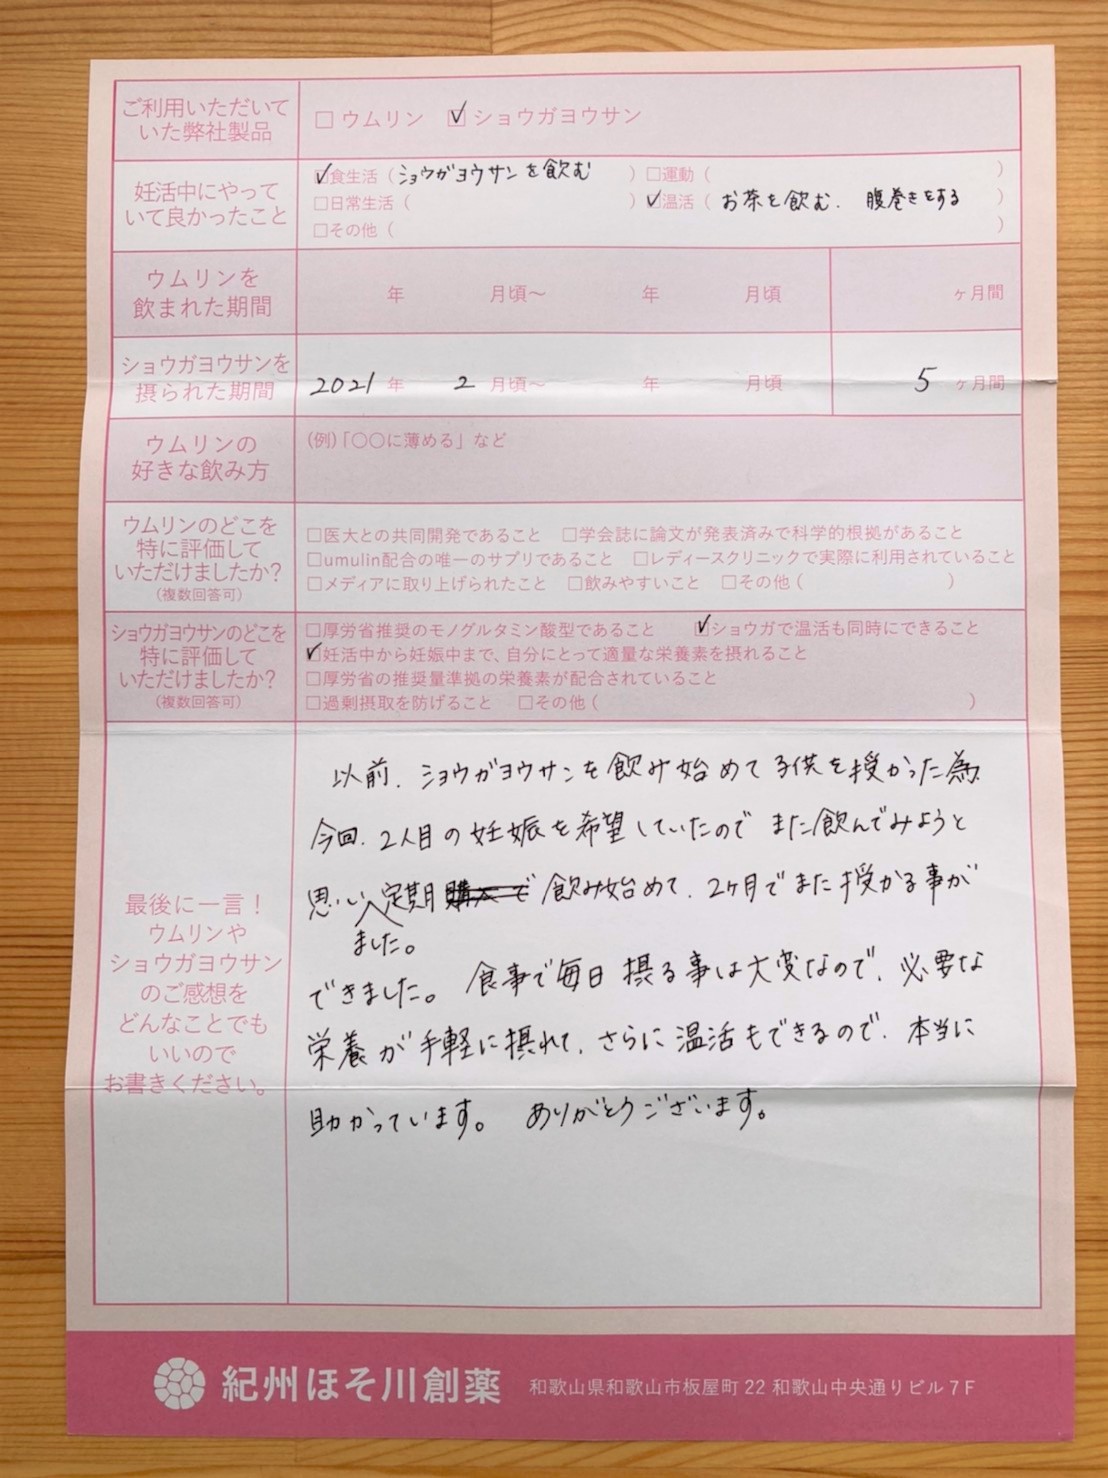 ご利用いただいて
いた弊社製品
□ウムリン ☑ショウガヨウサン
妊活中にやって
いて良かったこと
☑食生活(ショウガヨウサンを飲む) □運動( )
□日常生活( ) ☑温活(お茶を飲む. 腹巻きをする)
□その他( )
ウムリンを
飲まれた期間
年 月頃〜 年 月頃 ヶ月間
ショウガヨウサンを
摂られた期間
2021年 2月頃〜 年 月頃 5ヶ月間
ウムリンの
好きな飲み方
(例)「〇〇に薄める」など
ウムリンのどこを
特に評価して
いただけましたか?
(複数回答可)
□医大との共同開発であること □学会誌に論文が発表済みで科学的根拠があること
□umulin配合の唯一のサプリであること □レディースクリニックで実際に利用されていること
□メディアに取り上げられたこと □飲みやすいこと □その他( )
ショウガヨウサンのどこを
特に評価して
いただけましたか?
(複数回答可)
□厚労省推奨のモノグルタミン酸型であること ☑ショウガで温活も同時にできること
☑妊活中から妊娠中まで、自分にとって適量な栄養素を摂れること
□厚労省の推奨量準拠の栄養素が配合されていること
□過剰摂取を防げること □その他( )
最後に一言!
ウムリンや
ショウガヨウサン
のご感想を
どんなことでも
いいので
お書きください。
以前、ショウガヨウサンを飲み始めて子供を授かった為
今回、2人目の妊娠を希望していたのでまた飲んでみようと
思いました。定期購入で飲み始めて、2ヶ月でまた授かる事が
できました。食事で毎日摂る事は大変なので、必要な
栄養が手軽に摂れて、さらに温活もできるので、本当に
助かっています。ありがとうございます。
紀州ほそ川創薬 和歌山県和歌山市板屋町22 和歌山中央通りビル7F